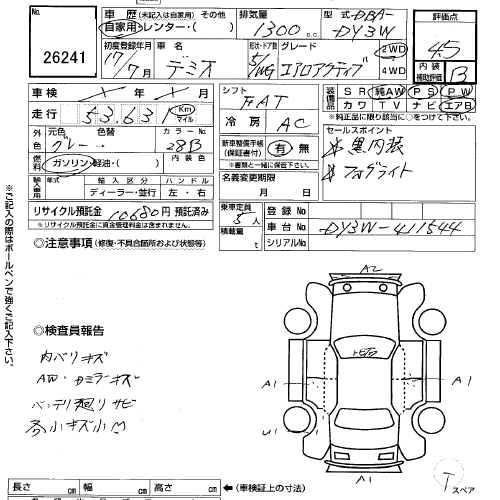 No. 車歴 (未記入は自家用) その他 排気量 型式 DBA- 評価点
26241 自家用・レンター・( ) 1300 c.c. DY3W 45
初度登録年月 車名 形状・ドア数 グレード 2WD 内装
17/7月 デミオ 5/WG エアロアクティブ 4WD 補助評価 B
車検 年 月 シフト FAT 装備品 SR 純AW PS PW
走行 53,631 Km マイル カワ TV ナビ エアB
※純正品に限り該当に○をつけて下さい。
外色 元色 色替 カラーNo. 冷房 AC セールスポイント
グレー 28B 新車整備手帳 (保証書付) 有・無 ※黒内装
燃料 ガソリン・軽油・( ) 内装色 ※書類と一緒に保管下さい。 フォグライト
輸入車用 年式 輸入区分 ハンドル 名義変更期限
ディーラー・並行 左・右 月 日
リサイクル預託金 10680円 預託済み 乗車定員 5人 登録No.
※リサイクル預託金に資金管理料金は含まれません。 積載量 t 車台No. DY3W-411544
シリアルNo.
◎注意事項 (修復・不具合箇所および状態等)
※ご記入の際はボールペンで強くご記入下さい。
A2
◎検査員報告
内バリキズ
AW・カミラーキズ
バッテリ廻りサビ
各小キズ小凹
A1
A1
U1
A1
長さ cm 幅 cm 高さ cm ←(車検証上の寸法)
T スペア